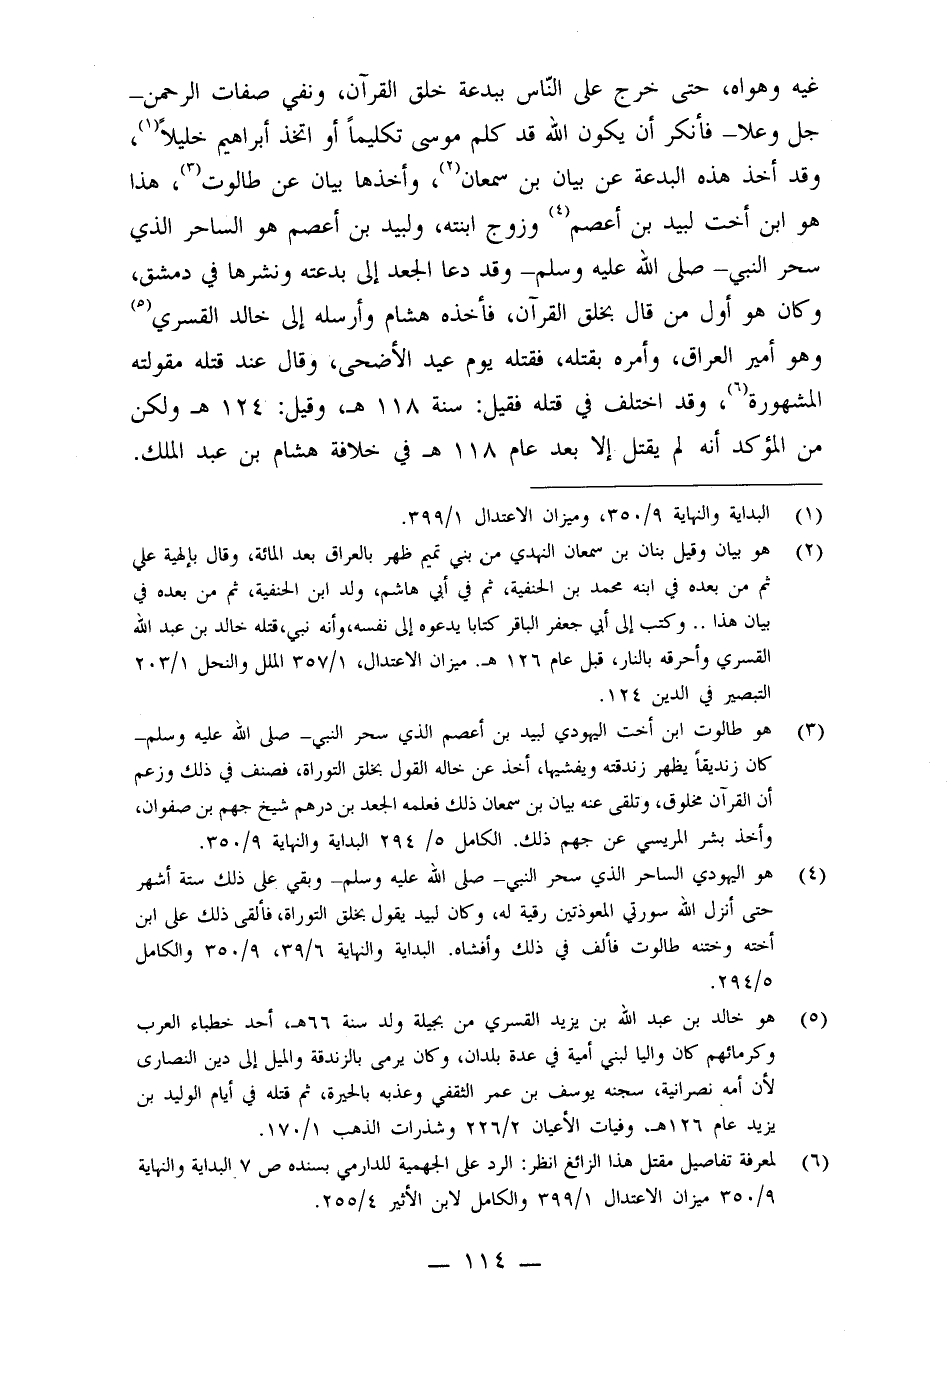 غيه وهواه، حتى خرج على النّاس ببدعة خلق القرآن، ونفي صفات الرحمن_
جل وعلا_ فأنكر أن يكون الله قد كلم موسى تكليماً أو اتخذ أبراهيم خليلاً(١)،
وقد أخذ هذه البدعة عن بيان بن سمعان(٢)، وأخذها بيان عن طالوت(٣)، هذا
هو ابن أخت لبيد بن أعصم(٤) وزوج ابنته، ولبيد بن أعصم هو الساحر الذي
سحر النبي_ صلى الله عليه وسلم_ وقد دعا الجعد إلى بدعته ونشرها في دمشق،
وكان هو أول من قال بخلق القرآن، فأخذه هشام وأرسله إلى خالد القسري(٥)
وهو أمير العراق، وأمره بقتله، فقتله يوم عيد الأضحى، وقال عند قتله مقولته
المشهورة(٦)، وقد اختلف في قتله فقيل: سنة ١١٨ هـ، وقيل: ١٢٤ هـ ولكن
من المؤكد أنه لم يقتل إلا بعد عام ١١٨ هـ في خلافة هشام بن عبد الملك.
(١) البداية والنهاية ٣٥٠/٩، وميزان الاعتدال ٣٩٩/١.
(٢) هو بيان وقيل بنان بن سمعان النهدي من بني تميم ظهر بالعراق بعد المائة، وقال بإلهية علي
ثم من بعده في ابنه محمد بن الحنفية، ثم في أبي هاشم، ولد ابن الحنفية، ثم من بعده في
بيان هذا .. وكتب إلى أبي جعفر الباقر كتابا يدعوه إلى نفسه،وأنه نبي،قتله خالد بن عبد الله
القسري وأحرقه بالنار، قبل عام ١٢٦ هـ. ميزان الاعتدال، ٣٥٧/١ الملل والنحل ٢٠٣/١
التبصير في الدين ١٢٤.
(٣) هو طالوت ابن أخت اليهودي لبيد بن أعصم الذي سحر النبي_ صلى الله عليه وسلم_
كان زنديقاً يظهر زندقته ويفشيها، أخذ عن خاله القول بخلق التوراة، فصنف في ذلك وزعم
أن القرآن مخلوق، وتلقى عنه بيان بن سمعان ذلك فعلمه الجعد بن درهم شيخ جهم بن صفوان،
وأخذ بشر المريسي عن جهم ذلك. الكامل ٥/ ٢٩٤ البداية والنهاية ٣٥٠/٩.
(٤) هو اليهودي الساحر الذي سحر النبي_ صلى الله عليه وسلم_ وبقي على ذلك ستة أشهر
حتى أنزل الله سورتي المعوذتين رقية له، وكان لبيد يقول بخلق التوراة، فألقى ذلك على ابن
أخته وختنه طالوت فألف في ذلك وأفشاه. البداية والنهاية ٣٩/٦، ٣٥٠/٩ والكامل
٢٩٤/٥.
(٥) هو خالد بن عبد الله بن يزيد القسري من بجيلة ولد سنة ٦٦هـ، أحد خطباء العرب
وكرمائهم كان واليا لبني أمية في عدة بلدان، وكان يرمى بالزندقة والميل إلى دين النصارى
لأن أمه نصرانية، سجنه يوسف بن عمر الثقفي وعذبه بالحيرة، ثم قتله في أيام الوليد بن
يزيد عام ١٢٦هـ. وفيات الأعيان ٢٢٦/٢ وشذرات الذهب ١٧٠/١.
(٦) لمعرفة تفاصيل مقتل هذا الزائغ انظر: الرد على الجهمية للدارمي بسنده ص ٧ البداية والنهاية
٣٥٠/٩ ميزان الاعتدال ٣٩٩/١ والكامل لابن الأثير ٢٥٥/٤.
_ ١١٤ _